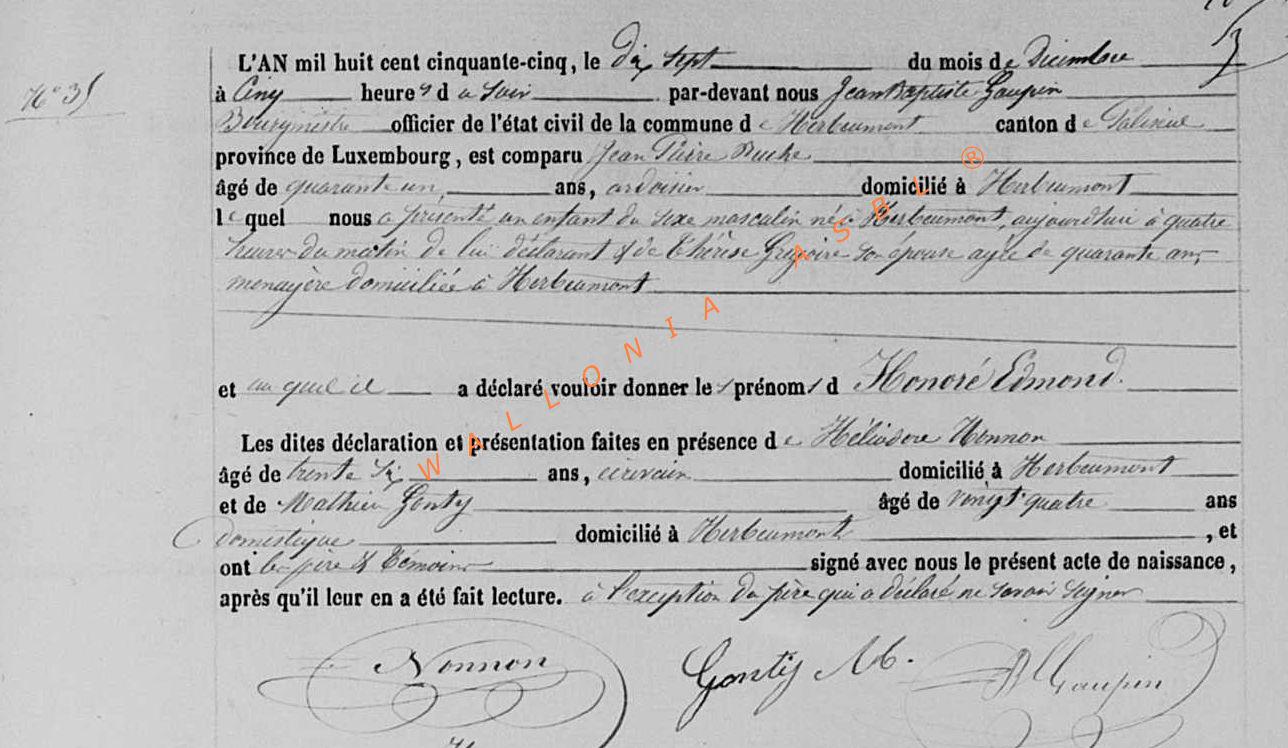 N° 35
L'AN mil huit cent cinquante-cinq, le Dix sept du mois de Décembre
à Cinq heures du Soir par-devant nous Jean Baptiste Gaupin
Bourgmestre officier de l'état civil de la commune de Herbeumont canton de Paliseul
province de Luxembourg, est comparu Jean Pierre
âgé de quarante un ans, ardoisier domicilié à Herbeumont
lequel nous a présenté un enfant du sexe masculin né à Herbeumont, aujourd'hui à quatre
heures du matin de lui déclarant & de Thérèse Grégoire son épouse agée de quarante ans
menagère domiciliée à Herbeumont
et au quel il a déclaré vouloir donner les prénoms d Honoré Edmond.
Les dites déclaration et présentation faites en présence de Héliodore Nonnon
âgé de trente six ans, écrivain domicilié à Herbeumont
et de Mathieu Gonty âgé de vingt quatre ans
domestique domicilié à Herbeumont, et
ont le père & témoins signé avec nous le présent acte de naissance,
après qu'il leur en a été fait lecture. à l'exception du père qui a déclaré ne savoir signer
Nonnon Gonty M. JB Gaupin
WALLONIA ASBL ®